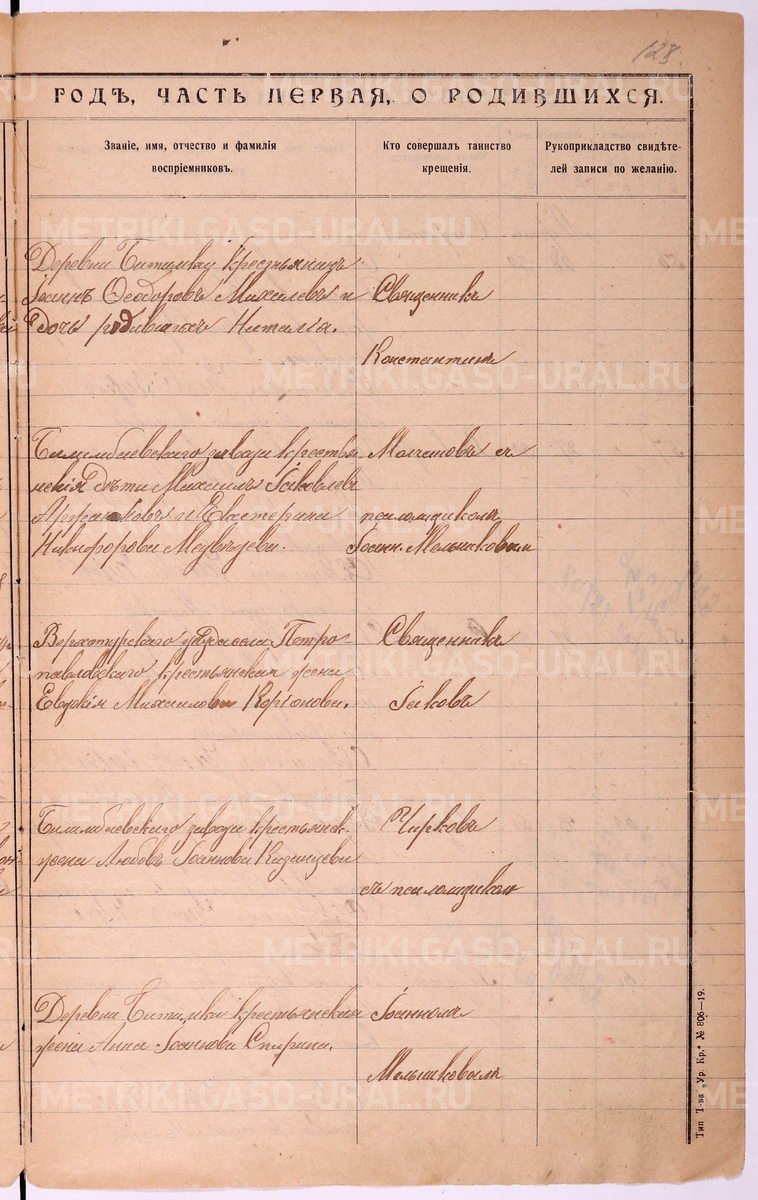 128
ГОДЪ, ЧАСТЬ ПЕРВАЯ, О РОДИВШИХСЯ.
Званіе, имя, отчество и фамилія
воспріемниковъ.
Кто совершалъ таинство
крещенія.
Рукоприкладство свидѣте-
лей записи по желанію.
Деревни Битимки крестьянинъ
Іоаннъ Ѳеодоровъ Михалевъ и
Дочь родившихъ Наталія.
Священникъ
Константинъ
Билимбаевскаго завода крестьян
нскія дѣти Михаилъ Іаковлевъ
и Екатерина
Никифорова Медвѣдева.
съ
псаломщикомъ
Іоанн. Мельниковымъ
Верхотурскаго уѣзда села Петро-
павловскаго крестьянская жена
Евдокія Михаилова
Священникъ
Іаковъ
Билимбаевскаго завода крестьянск.
жена Любовь Іоаннова Казанцева
Чирковъ
съ псаломщикомъ
Деревни Битимки крестьянская
жена Анна Іоаннова Спирина.
Іоанномъ
Мельниковымъ
Тип Т-ва „Ур. Кр." № 806—19.
METRIKI.GASO-URAL.RU